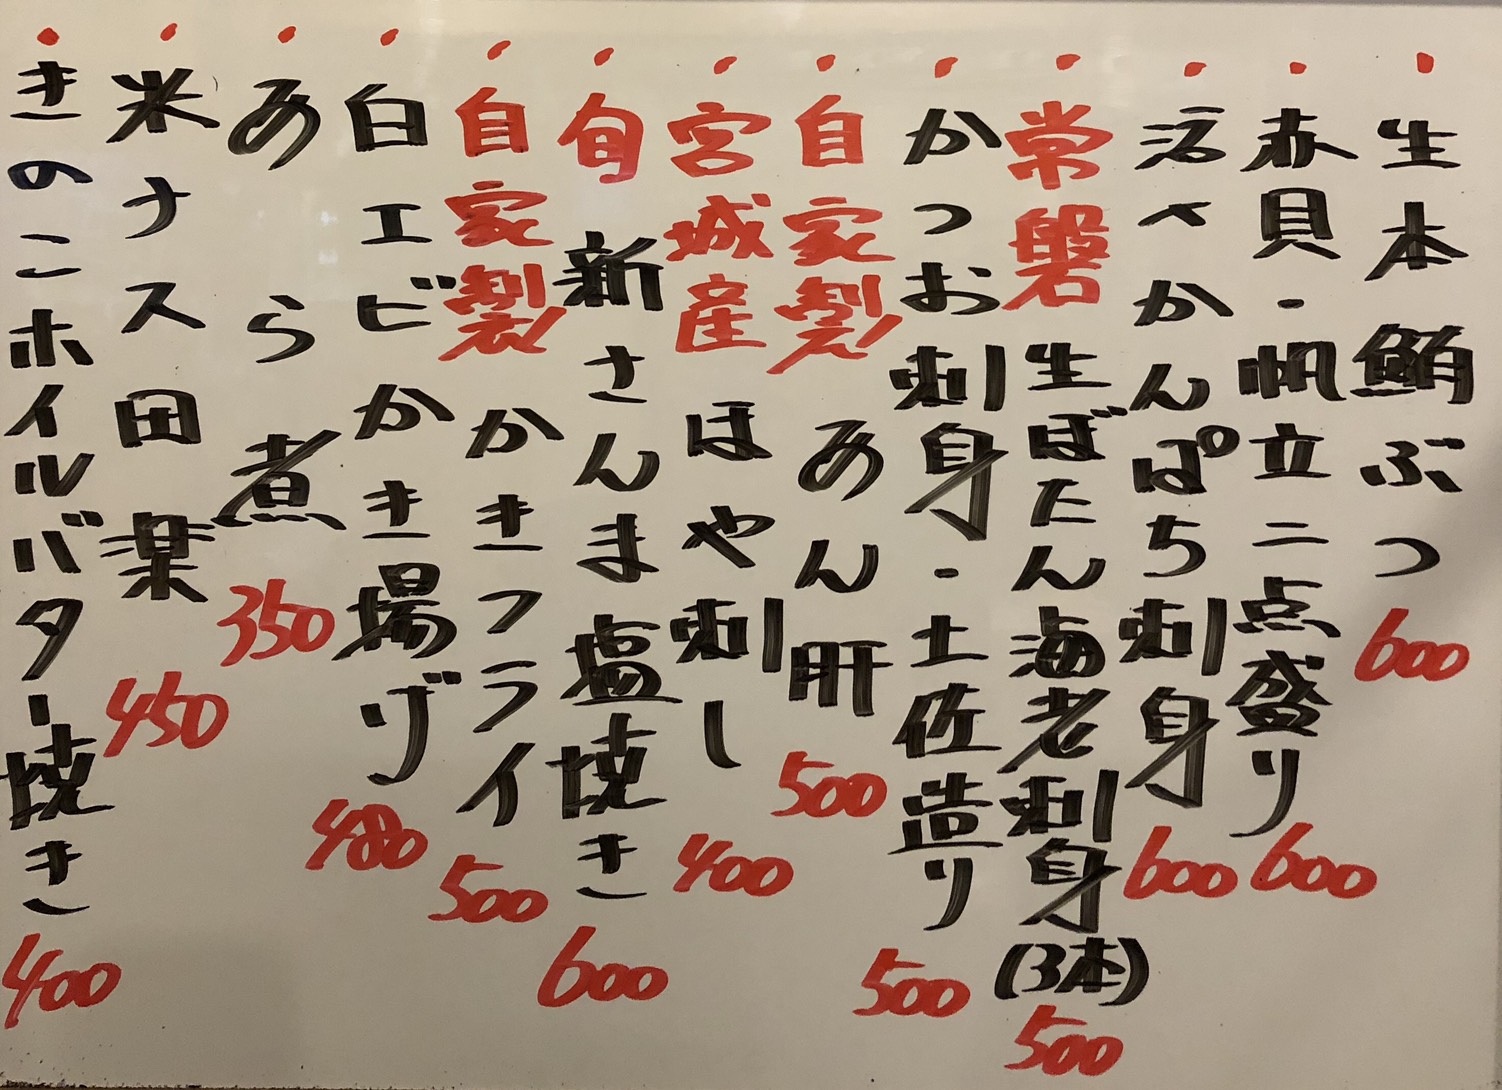 生本鮪ぶつ 600
赤貝・帆立二点盛り 600
活〆かんぱち刺身 600
常磐 生ぼたん海老刺身(3本) 500
かつお刺身・土佐造り 500
自家製! あん肝 500
宮城産 ほや刺し 400
旬 新さんま塩焼き 600
自家製! かきフライ 500
白エビかき揚げ 480
あら煮 350
米ナス田楽 450
きのこホイルバター焼き 400